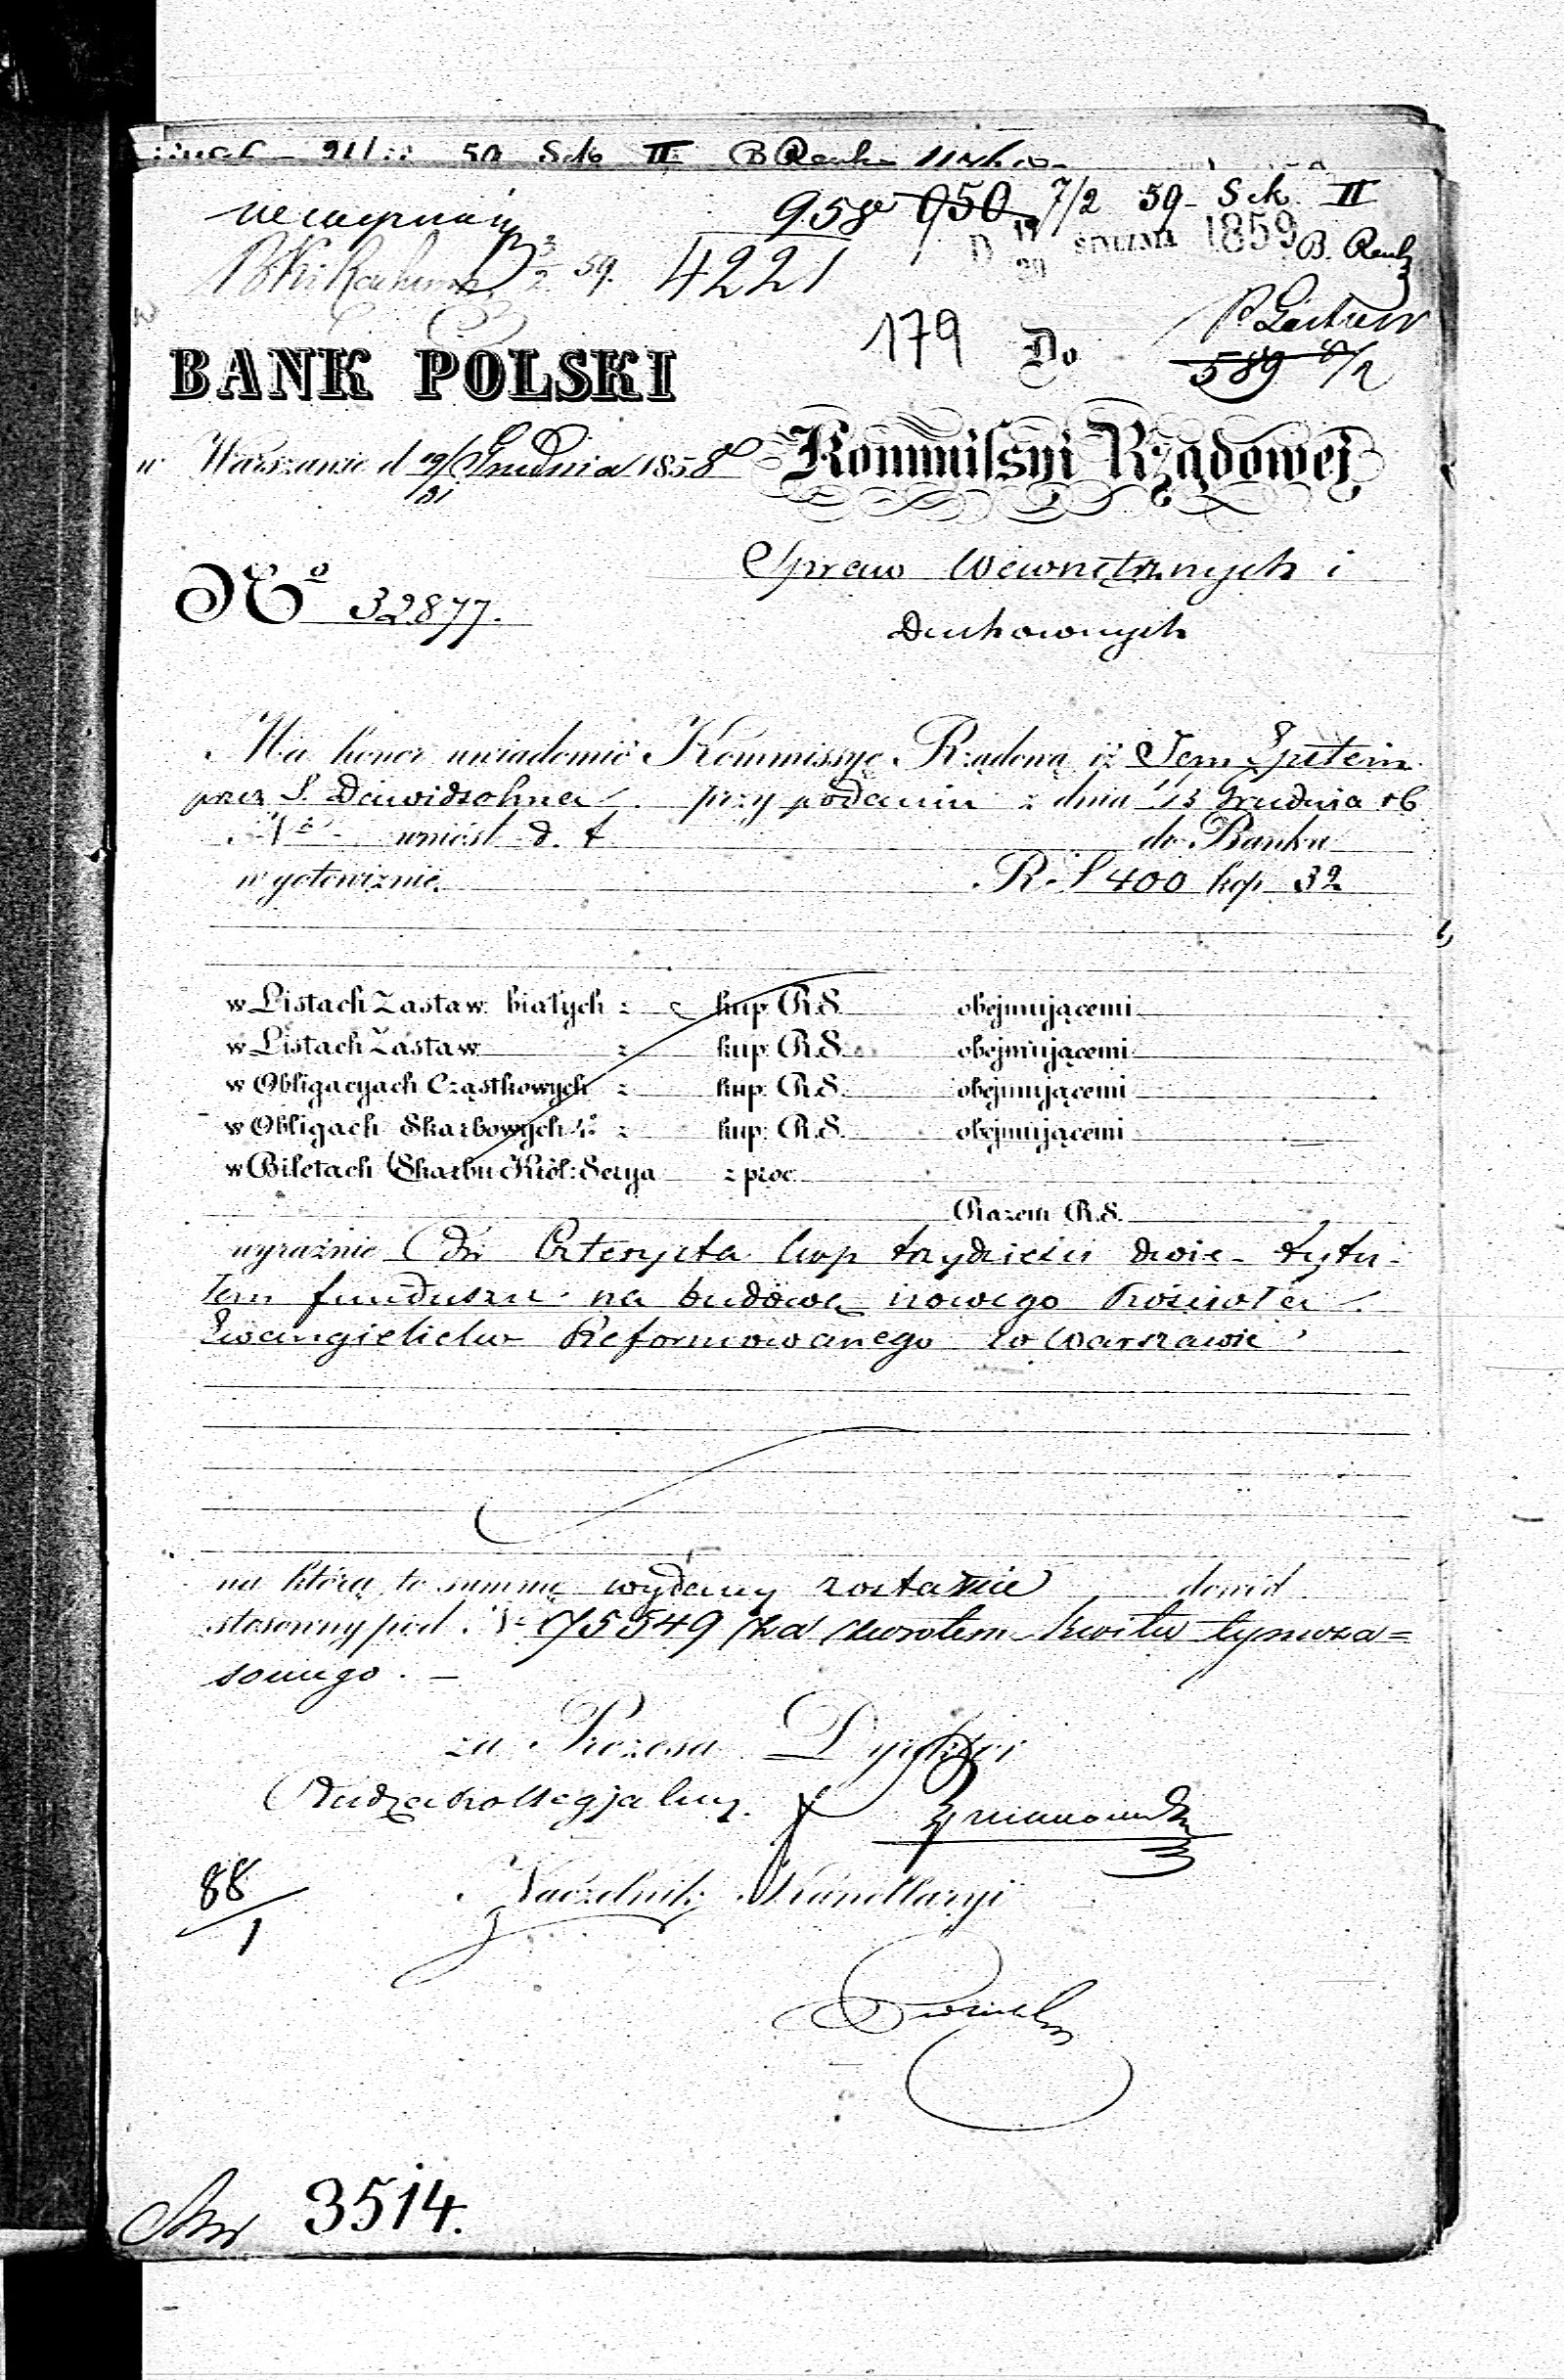 50 Sek II
958 950 7/2 59 - Sek II
D 17/29 STYCZNIA 1859
B.
3/2 59. 4221
179 Do
589
BANK POLSKI
w Warszawie d 19/31 Grudnia 1858
Kommissyi Rządowej
Spraw Wewnętrznych i
Duchownych
No 32877.
Ma honor uwiadomić Kommissyę Rządową iż Jem Epstein
przez S. Dawidsohna przy podaniu z dnia 1/13 Grudnia rb
No - wniosł d. t. do Banku
w gotowiznie R. S 400 kop. 32
w Listach Zastaw. białych z kup. R.S. obejmującemi
w Listach Zastaw z kup. R.S. obejmującemi
w Obligacyach Cząstkowych z kup. R.S. obejmującemi
w Obligach Skarbowych z kup. R.S. obejmującemi
w Biletach Skarbu Król: Serya z proc.
Razem R.S.
wyraźnie Czterysta kop trzydzieści dwie - tytu-
łem funduszu na budowę nowego Kościoła
Ewangielicko Reformowanego w Warszawie
na którą to summę wydany zostanie dowód
stosowny pod No 175549 za zwrotem kwitu tymcza=
sowego. —
za Prezesa Dyrektor
Radzca Kollegjalny
Naczelnik Kancellaryi
88/1
3514.